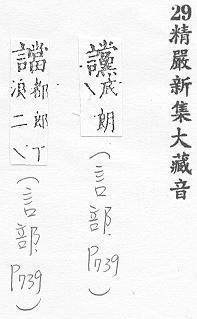 29精嚴新集大藏音
讜底朗(言部P739)
譡都郎丁浪二(言部P739)